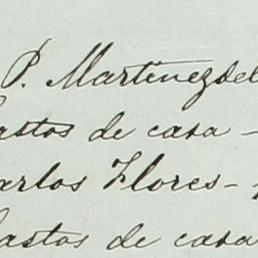 P. Martinez del
Gastos de casa -
Carlos Flores -
Gastos de casa